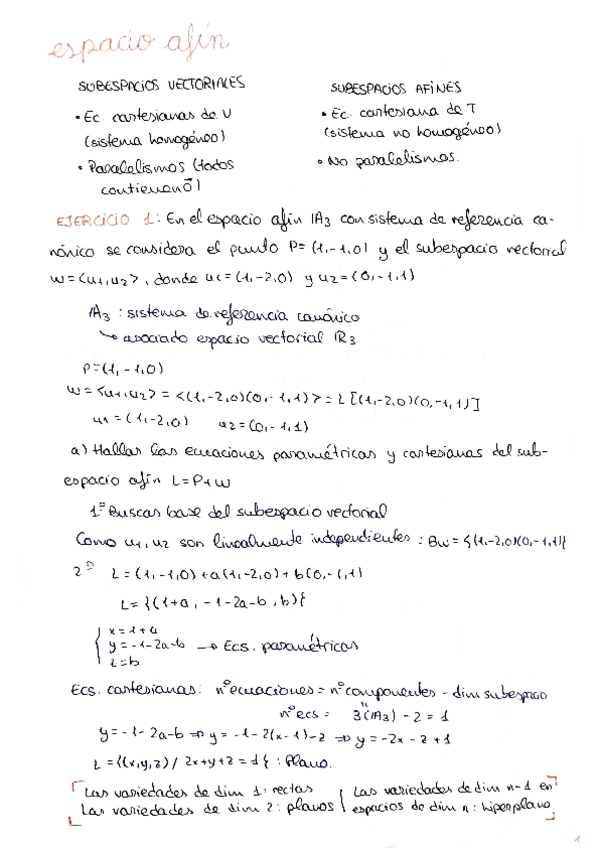 espacio afín
SUBESPACIOS VECTORIALES
• Ec. cartesianas de U
(sistema homogéneo)
• Paralelismos (todos
contienen 0⃗)
SUBESPACIOS AFINES
• Ec. cartesiana de T
(sistema no homogéneo)
• No paralelismos.
EJERCICIO 1: En el espacio afín IA3 con sistema de referencia ca-
nónico se considera el punto P=(1,-1,0) y el subespacio vectorial
W=<u1,u2>, donde u1=(1,-2,0) y u2=(0,-1,1)
IA3 : sistema de referencia canónico
↳ asociado espacio vectorial IR3
P=(1,-1,0)
W=<u1,u2> = <(1,-2,0)(0,-1,1)> = L[(1,-2,0)(0,-1,1)]
u1=(1,-2,0) u2=(0,-1,1)
a) Hallar las ecuaciones paramétricas y cartesianas del sub-
espacio afín L=P+W
1º Buscas base del subespacio vectorial
Como u1,u2 son linealmente independientes: Bw={(1,-2,0)(0,-1,1)}
2º L=(1,-1,0)+a(1,-2,0)+b(0,-1,1)
L={(1+a, -1-2a-b, b)}
{ x=1+a
y=-1-2a-b → Ecs. paramétricas
z=b
Ecs. cartesianas: nº ecuaciones = nº componentes - dim subespacio
nº ecs = 3 (IA3) - 2 = 1
y=-1-2a-b ⇒ y=-1-2(x-1)-z ⇒ y=-2x-z+1
L={(x,y,z) / 2x+y+z=1} : Plano.
Las variedades de dim 1: rectas
Las variedades de dim 2: planos
Las variedades de dim n-1 en
espacios de dim n: hiperplano
1